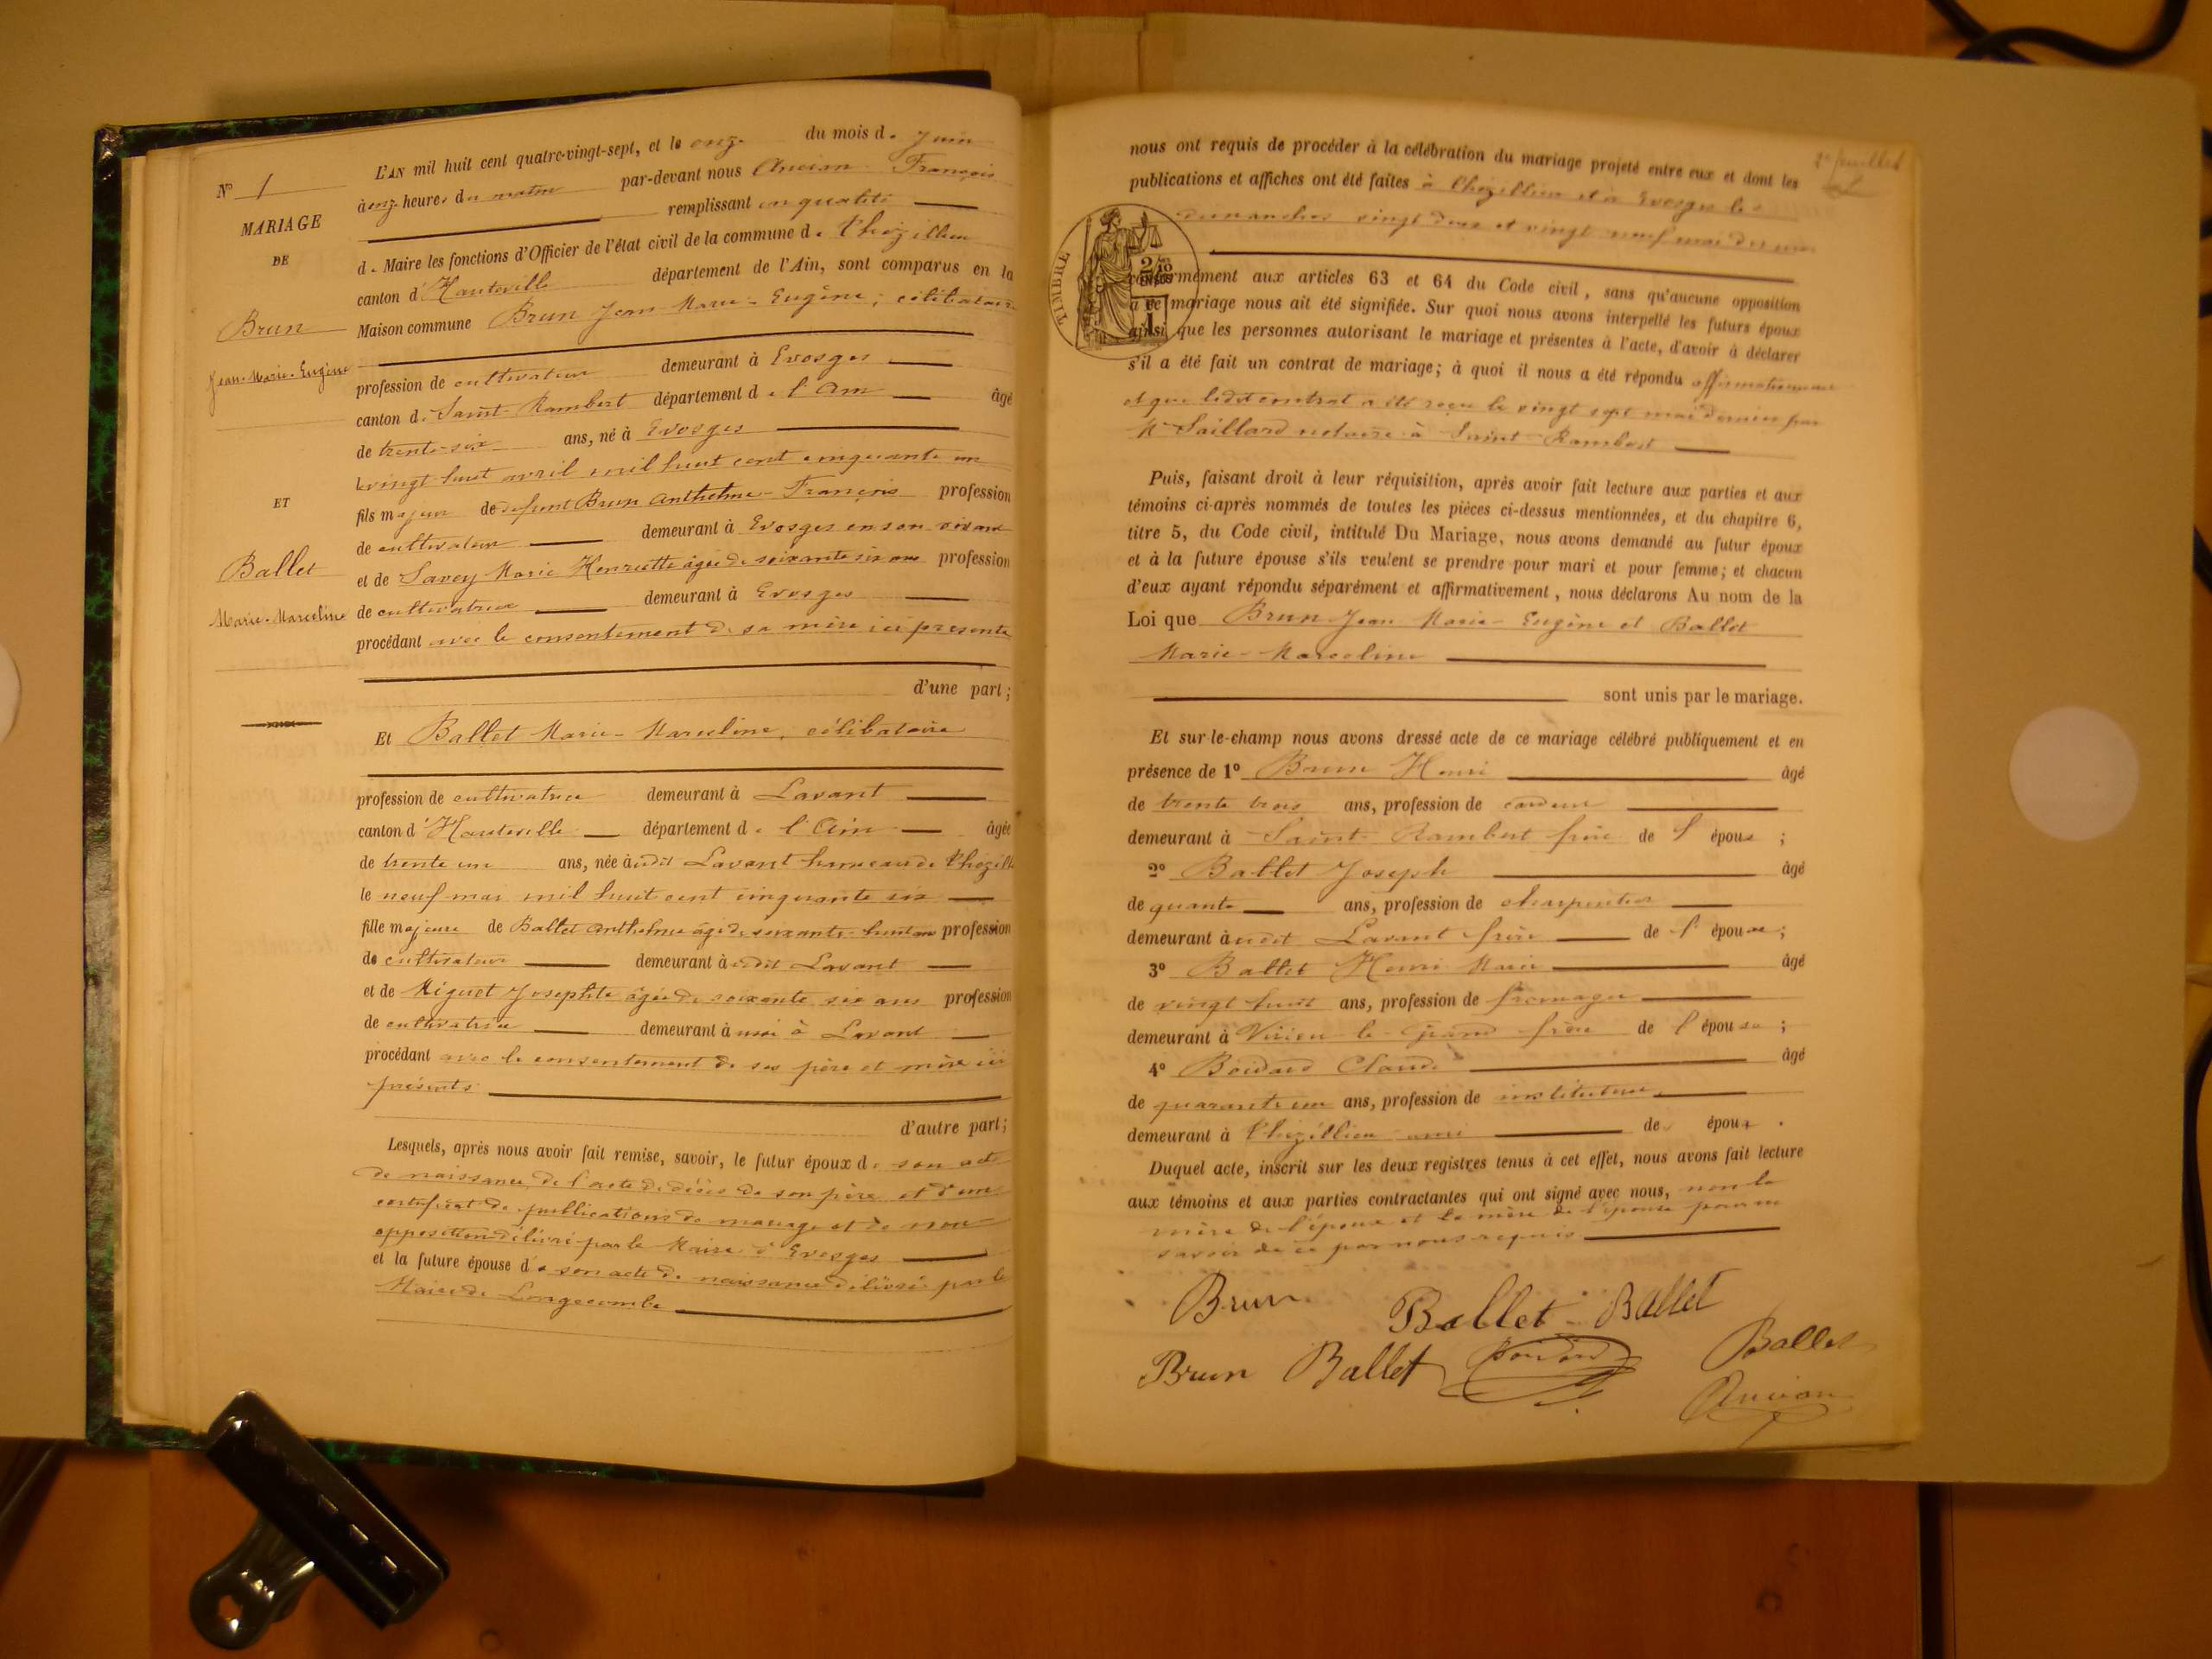 N° 1
MARIAGE
DE
Brun
Jean-Marie-Eugène
ET
Ballet
Marie-Marceline
L'AN mil huit cent quatre-vingt-sept, et le onze du mois de Juin
à onze heures du matin par-devant nous Ancian François
remplissant en qualité
de Maire les fonctions d'Officier de l'état civil de la commune de Thézillieu
canton d'Hauteville département de l'Ain, sont comparus en la
Maison commune Brun Jean-Marie-Eugène, célibataire
profession de cultivateur demeurant à Evosges
canton de Saint-Rambert département de l'Ain âgé
de trente-six ans, né à Evosges
le vingt huit avril mil huit cent cinquante un
fils majeur de defunt Brun Anthelme-François profession
de cultivateur demeurant à Evosges en son vivant
et de Savey Marie Henriette âgée de soixante six ans profession
de cultivatrice demeurant à Evosges
procédant avec le consentement de sa mère ici présente
d'une part ;
Et Ballet Marie-Marceline, célibataire
profession de cultivatrice demeurant à Lavant
canton d'Hauteville département de l'Ain âgée
de trente un ans, née à udit Lavant hameau de Thézill
le neuf mai mil huit cent cinquante six
fille majeure de Ballet Anthelme âgé de soixante-huit ans profession
de cultivateur demeurant à udit Lavant
et de Miguet Josephte âgée de soixante six ans profession
de cultivatrice demeurant à aussi à Lavant
procédant avec le consentement de ses père et mère ici
présents
d'autre part ;
Lesquels, après nous avoir fait remise, savoir, le futur époux de son acte
de naissance, de l'acte de décès de son père et d'une
certificat de publications de mariage et de non
opposition délivré par le Maire d'Evosges
et la future épouse de son acte de naissance délivré par le
Maire de Longecombe
2e feuillet
nous ont requis de procéder à la célébration du mariage projeté entre eux et dont les
publications et affiches ont été faites à Thézillieu et à Evosges les
dimanches vingt deux et vingt neuf mai dernier
TIMBRE
conformément aux articles 63 et 64 du Code civil, sans qu'aucune opposition
à ce mariage nous ait été signifiée. Sur quoi nous avons interpellé les futurs époux
ainsi que les personnes autorisant le mariage et présentes à l'acte, d'avoir à déclarer
s'il a été fait un contrat de mariage ; à quoi il nous a été répondu affirmativement
et que ledit contrat a été reçu le vingt sept mai dernier par
Me Saillard notaire à Saint-Rambert
Puis, faisant droit à leur réquisition, après avoir fait lecture aux parties et aux
témoins ci-après nommés de toutes les pièces ci-dessus mentionnées, et du chapitre 6,
titre 5, du Code civil, intitulé Du Mariage, nous avons demandé au futur époux
et à la future épouse s'ils veulent se prendre pour mari et pour femme ; et chacun
d'eux ayant répondu séparément et affirmativement, nous déclarons Au nom de la
Loi que Brun Jean Marie-Eugène et Ballet
Marie-Marceline
sont unis par le mariage.
Et sur-le-champ nous avons dressé acte de ce mariage célébré publiquement et en
présence de 1° Brun Henri âgé
de trente trois ans, profession de
demeurant à Saint-Rambert frère de l'époux ;
2° Ballet Joseph âgé
de quante ans, profession de charpentier
demeurant à udit Lavant frère de l'épouse ;
3° Ballet Henri Marie âgé
de vingt huit ans, profession de fromager
demeurant à Virieu le Grand frère de l'épouse ;
4° Boidard Claude âgé
de quarante un ans, profession de instituteur
demeurant à Thézillieu ami des époux.
Duquel acte, inscrit sur les deux registres tenus à cet effet, nous avons fait lecture
aux témoins et aux parties contractantes qui ont signé avec nous, non la
mère de l'époux et la mère de l'épouse pour ne
savoir de ce par nous requis.
Brun Ballet Ballet
Brun Ballet Boidard Ballet
Ancian